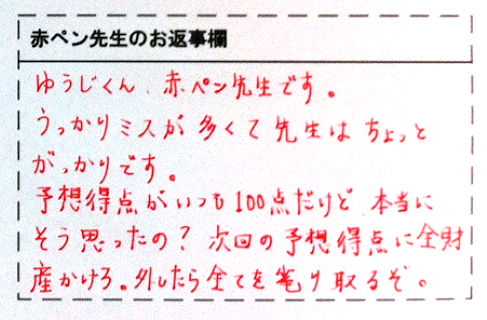 赤ペン先生のお返事欄
ゆうじくん、赤ペン先生です。
うっかりミスが多くて先生はちょっと
がっかりです。
予想得点がいつも100点だけど、本当に
そう思ったの？次回の予想得点に全財
産かけろ。外したら全てを毟り取るぞ。